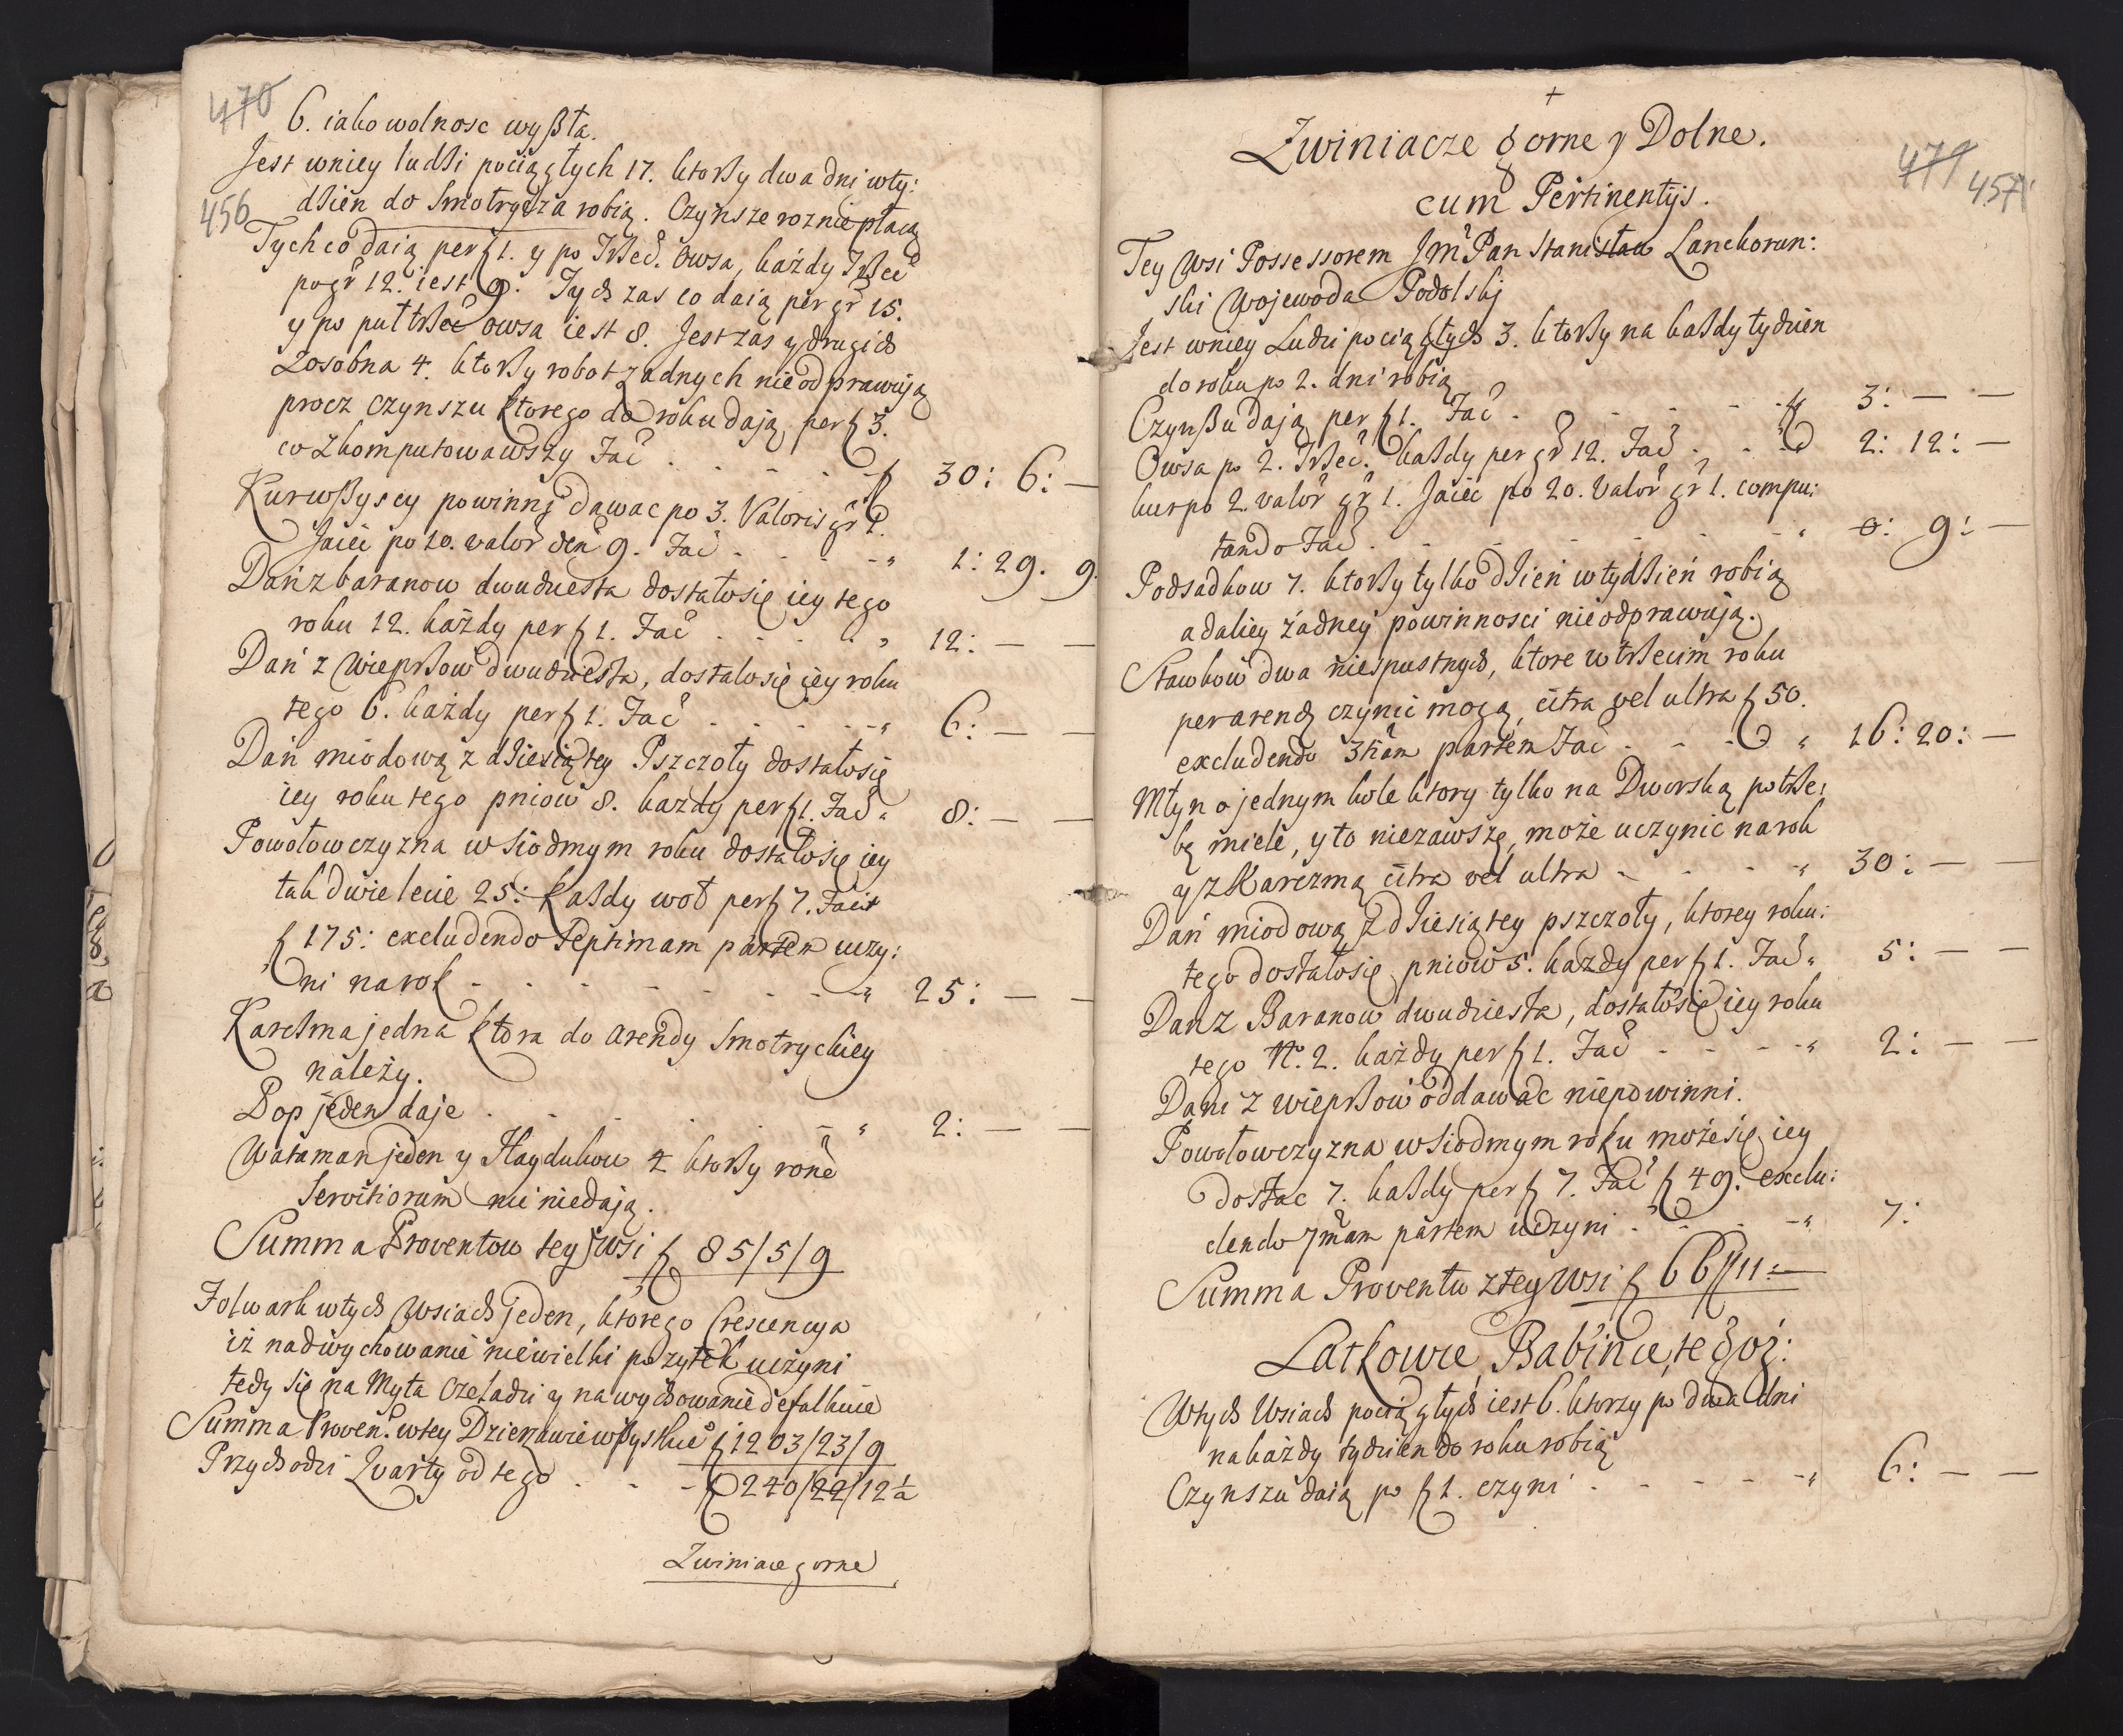 470
6. iako wolnosc wyßła.
Jest wniey ludzi pociągłych 17. ktorzy dwa dni wty:
456
dzien do Smotrycza robią. Czynsze roznie płacą
Tych co daią per f 1. y po Trzec. Owsa, każdy Trzec
po gr 12. iest 9. Tych zas co daią per gr 15.
y po puł trzec owsa iest 8. Jest zas y drugich
Zosobna 4. ktorzy robot żadnych nieodprawują
procz czynszu ktorego do roku dają per f 3.
co Zkomputowawszy Fac . - - - - f 30: 6: —
Kur wszyscy powinni dawac po 3. Valoris gr 1.
Jaiec po 10. valor den 9. Fac - - - - " 1: 29. 9.
Dań z baranow dwudziesta dostałosię iey tego
roku 12. każdy per f 1. Fac . - - - " 12: — —
Dań z Wieprzow dwudziesta, dostałosię iey roku
tego 6. każdy per f 1. Fac . - - - - " 6: — —
Dań miodową z dziesiątey Pszczoły dostałosię
iey roku tego pniow 8. kazdy per f 1. Fac " 8: — —
Powołowczyzna w siodmym roku dostałosię iey
tak dwie lecie 25: Każdy woł per f 7. Facit
f 175: excludendo Septimam partem uczy:
ni na rok - - - - - - - - " 25: — —
Karczma jedna ktora do arendy Smotryckiey
należy.
Pop jeden daje . - - . - - " 2: — —
Wataman jeden y Haydukow 4 ktorzy rone
Servitiorum nic niedają.
Summa Proventow tey Wsi f 85/5/9
Folwark wtych Wsiach jeden, ktorego Crescencya
iż nadwychowanie niewielki pożytek uczyni
tedy się na Myta Czeladzi y na wychowanie defalkuie
Summa Proven. wtey Dzierzawie wszystkie f 1203/23/9
Przychodzi Quarty od tego . - - - f 240/22/12½
Zwiniacze gorne

+
Zwiniacze gorne y Dolne.
471
457
cum Pertinentijs.
Tey Wsi Possessorem Jm Pan Stanisław Lanckoron:
ski Wojewoda Podolski
Jest wniey Ludzi pociągłych 3. ktorzy na każdy tydzien
do roku po 2. dni robią
Czynszu dają per f 1. Fac . - - - - f 3: — —
Owsa po 2. Trzec. każdy per gr 12. Fac . - - " 2: 12: —
kur po 2. valor gr 1. Jaiec po 20. Valor gr 1. compu:
tando Fac . - - - - - - " 0: 9: —
Podsadkow 7. ktorzy tylko dzień wtydzień robią
a daliey żadney powinnosci nieodprawują.
Stawkow dwa niespustnych, ktore w trzecim roku
per arendę czynic mogą, citra vel ultra f 50.
excludendo 3tiam partem Fac - - - " 16: 20: —
Młyn o jednym kole ktory tylko na Dworską potrze:
bę miele, y to niezawszę, może uczynic na rok
y z Karczmą citra vel ultra - - - - " 30: — —
Dań miodową z dziesiątey pszczoły, ktorey roku:
tego dostałosię pniow 5. każdy per f 1. Fac " 5: — —
Dan z Baranow dwudziesta, dostałosię iey roku
tego No. 2. każdy per f 1. Fac - - - - " 2: — —
Dani z wieprzow oddawac niepowinni.
Powołowczyzna w siodmym roku możesię iey
dostac 7. każdy per f 7. Fac f 49. exclu:
dendo 7mam partem uczyni . - - - - " 7:
Summa Proventu z tey Wsi f 66/11: —
Latkowce, Babince, tegoż:
Wtych Wsiach pociągłych iest 6. ktorzy po dwa dni
na każdy tydzien do roku robią
Czynszu daią po f 1. czyni . - - - - " 6: — —